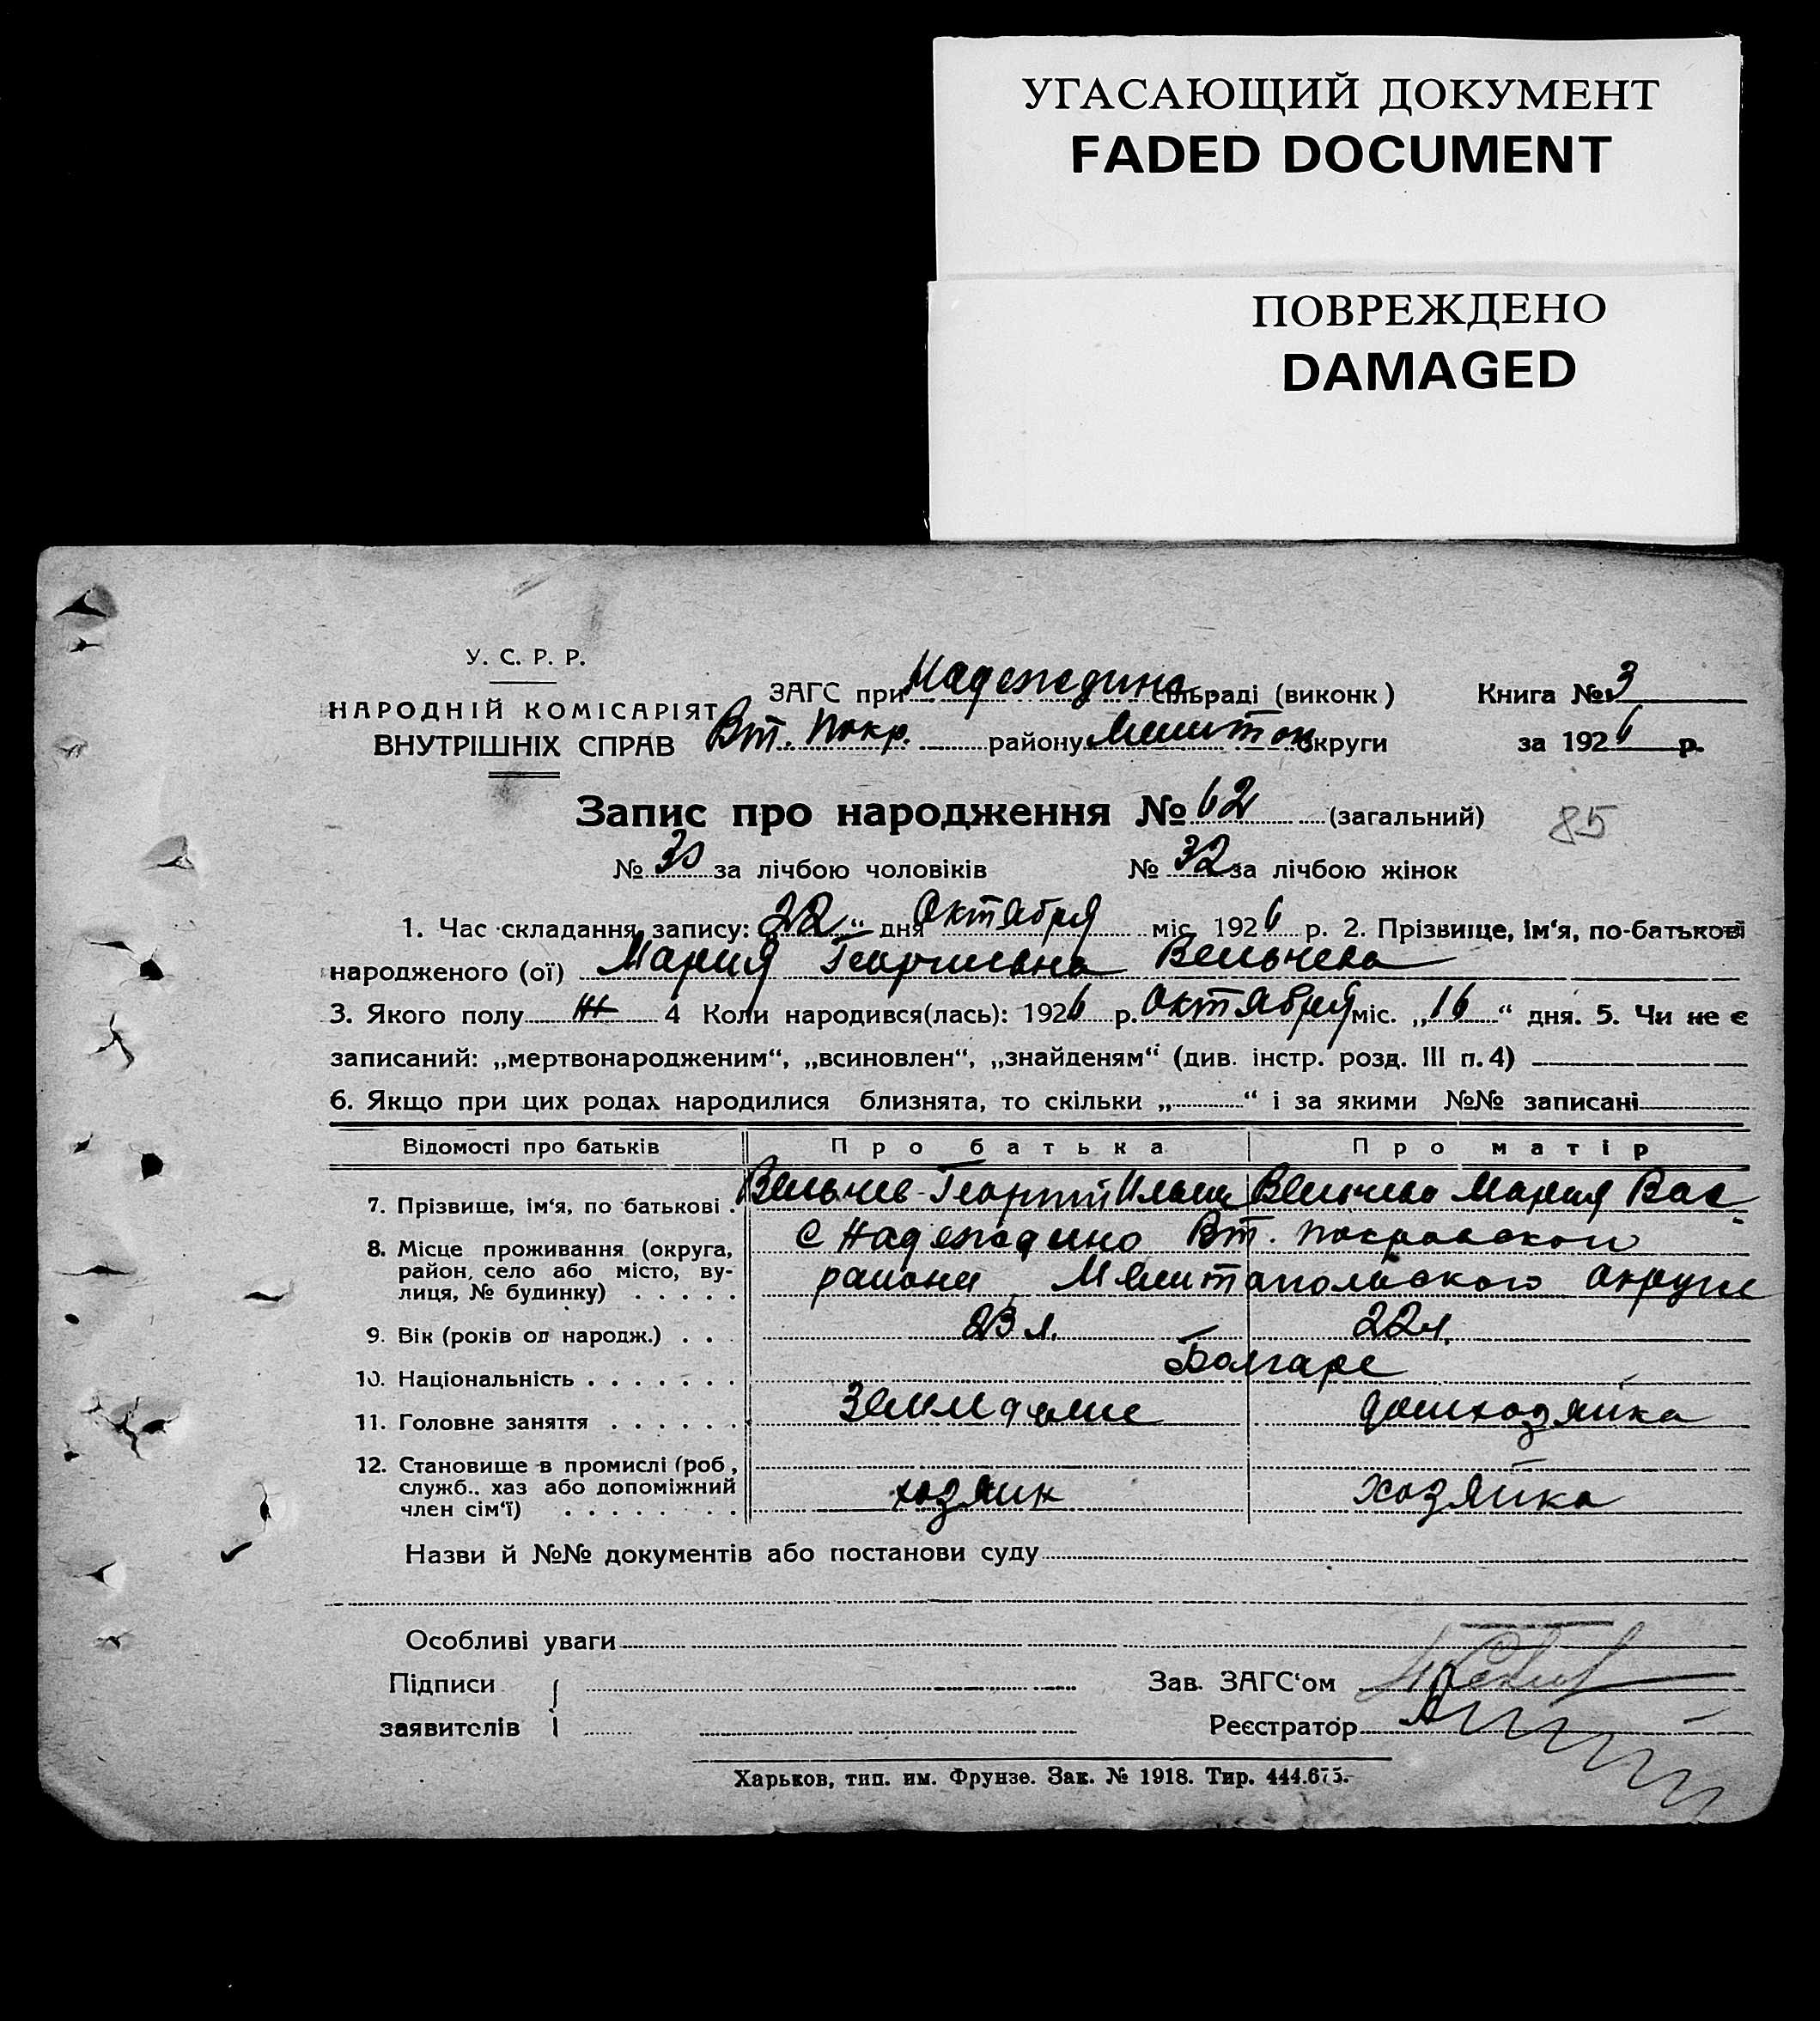 УГАСАЮЩИЙ ДОКУМЕНТ
FADED DOCUMENT
ПОВРЕЖДЕНО
DAMAGED
У. С. Р. Р.
НАРОДНІЙ КОМІСАРІЯТ
ВНУТРІШНІХ СПРАВ
ЗАГС при Надеждинс. сільраді (виконк) Книга № 3
Вт. Покр. району Мелитоп округи за 1926 р.
Запис про народження № 62 (загальний)
85
№ 30 за лічбою чоловіків № 32 за лічбою жінок
1. Час складання запису: 22" дня Октября міс. 1926 р. 2. Прізвище, ім'я, по-батькові
народженого (ої) Мария Георгиевна Вельчева
3. Якого полу ж 4 Коли народився(лась): 1926 р. Октября міс. „16" дня. 5. Чи не є
записаний: „мертвонародженим", „всиновлен", „знайденям" (див. інстр. розд. III п. 4)
6. Якщо при цих родах народилися близнята, то скільки „ " і за якими №№ записані
Відомості про батьків Про батька Про матір
7. Прізвище, ім'я, по батькові . Вельчев Георгий Ильич Вельчева Мария Вас
8. Місце проживання (округа, с Надеждино Вт. Покровского
район, село або місто, ву-
лиця, № будинку) . . . . . района Мелитопольского округа
9. Вік (років од народж.) . . 23 л. 22 л.
10. Національність . . . . . . . Болгаре
11. Головне заняття . . . . . . Земледелие домхозяйка
12. Становище в промислі (роб,
служб., хаз або допоміжний
член сім'ї) . . . . . . . хозяин хозяйка
Назви й №№ документів або постанови суду
Особливі уваги
Підписи Зав. ЗАГС'ом
заявителів Реєстратор
Харьков, тип. им. Фрунзе. Зак. № 1918. Тир. 444.675.